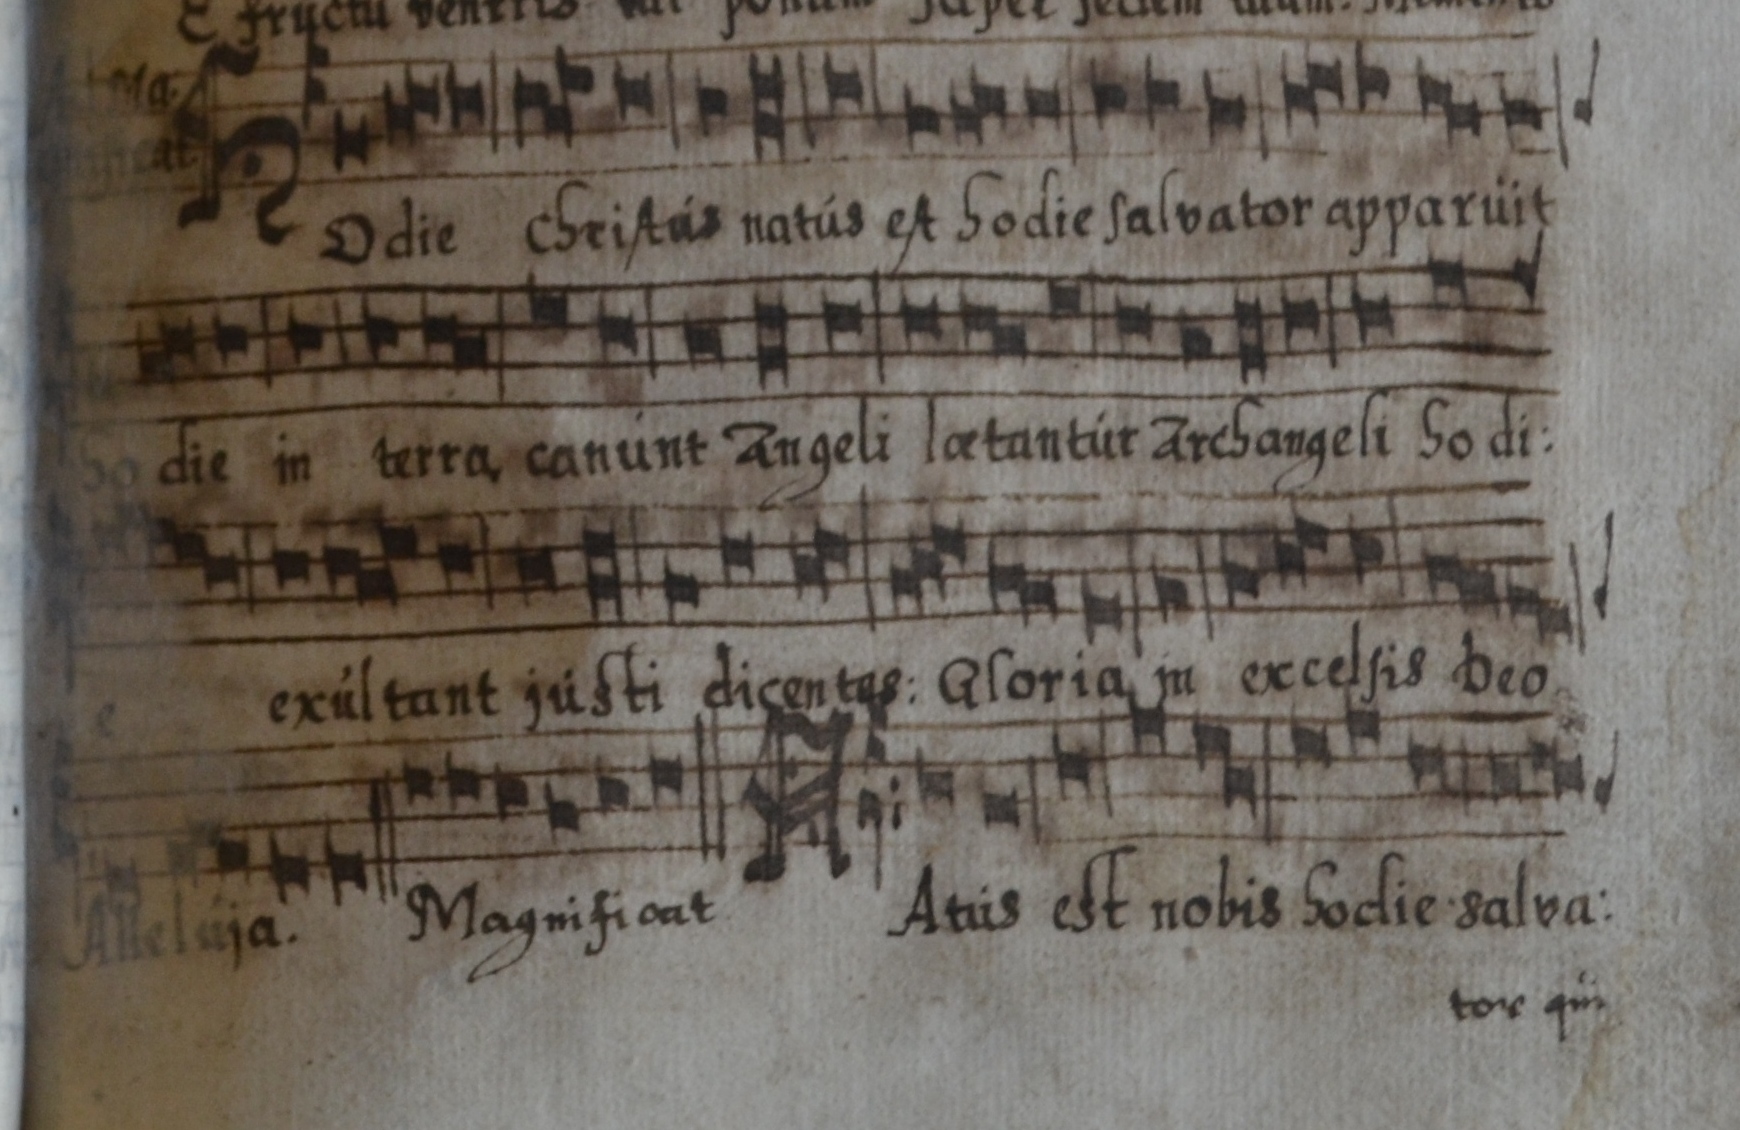 E fructu ventris tui ponam super sedem tuam.
Ma:
nificat.
HOdie Christús natús est hodie salvator apparúit
ho die in terra canúnt Angeli lœtantúr Archangeli ho di:
e exúltant jústi dicentes: Gloria in excelsis Deo
Allelúja. Magnificat Ani NAtús est nobis hodie salva:
tore qui